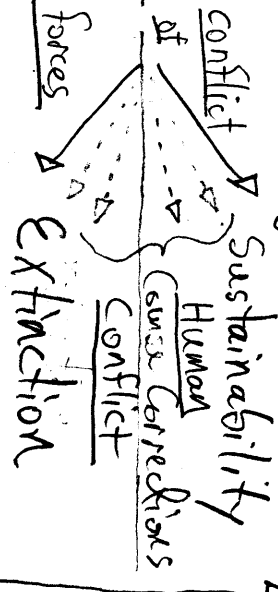 conflict
of
forces
Sustainability
Human
Course Corrections
Conflict
Extinction